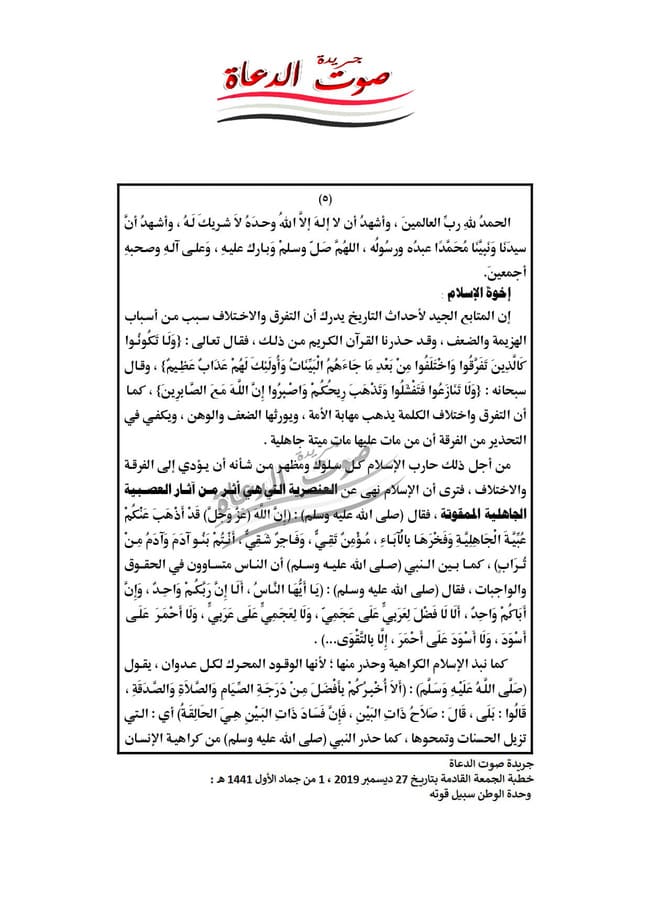 جريدة
صوت الدعاة
(٥)
الحمدُ للهِ ربِّ العالمينَ ، وأشهدُ أن لا إلهَ إلاَّ اللهُ وحدَهُ لاَ شريكَ لَهُ ، وأشهدُ أنَّ
سيدَنَا وَنَبِيَّنَا مُحَمَّدًا عبدُه ورسولُه ، اللهمَّ صَلّ وسلمْ وبارك عليهِ ، وَعلى آلِهِ وصحبِهِ
أجمعينَ.
إخوة الإسلام :
إن المتابع الجيد لأحداث التاريخ يدرك أن التفرق والاختلاف سبب من أسباب
الهزيمة والضعف ، وقد حذرنا القرآن الكريم من ذلك ، فقال تعالى : {وَلَا تَكُونُوا
كَالَّذِينَ تَفَرَّقُوا وَاخْتَلَفُوا مِنْ بَعْدِ مَا جَاءَهُمُ الْبَيِّنَاتُ وَأُولَئِكَ لَهُمْ عَذَابٌ عَظِيمٌ} ، وقال
سبحانه : {وَلَا تَنَازَعُوا فَتَفْشَلُوا وَتَذْهَبَ رِيحُكُمْ وَاصْبِرُوا إِنَّ اللَّهَ مَعَ الصَّابِرِينَ} ، كما
أن التفرق واختلاف الكلمة يذهب مهابة الأمة ، ويورثها الضعف والوهن ، ويكفي في
التحذير من الفرقة أن من مات عليها مات ميتة جاهلية .
من أجل ذلك حارب الإسلام كل سلوك ومظهر من شأنه أن يؤدي إلى الفرقة
والاختلاف ، فترى أن الإسلام نهى عن العنصرية التي هي أثر من آثار العصبية
الجاهلية الممقوتة ، فقال (صلى الله عليه وسلم) : (إِنَّ اللَّهَ (عَزَّ وَجَلَّ) قَدْ أَذْهَبَ عَنْكُمْ
عُبِّيَّةَ الْجَاهِلِيَّةِ وَفَخْرَهَا بِالْآبَاءِ ، مُؤْمِنٌ تَقِيٌّ ، وَفَاجِرٌ شَقِيٌّ ، أَنْتُمْ بَنُو آدَمَ وَآدَمُ مِنْ
تُرَابٍ) ، كما بين النبي (صلى الله عليه وسلم) أن الناس متساوون في الحقوق
والواجبات ، فقال (صلى الله عليه وسلم) : (يَا أَيُّهَا النَّاسُ ، أَلَا إِنَّ رَبَّكُمْ وَاحِدٌ ، وَإِنَّ
أَبَاكُمْ وَاحِدٌ ، أَلَا لَا فَضْلَ لِعَرَبِيٍّ عَلَى عَجَمِيٍّ ، وَلَا لِعَجَمِيٍّ عَلَى عَرَبِيٍّ ، وَلَا أَحْمَرَ عَلَى
أَسْوَدَ ، وَلَا أَسْوَدَ عَلَى أَحْمَرَ ، إِلَّا بِالتَّقْوَى...) .
كما نبذ الإسلام الكراهية وحذر منها ؛ لأنها الوقود المحرك لكل عدوان ، يقول
(صَلَّى اللَّهُ عَلَيْهِ وَسَلَّمَ) : (أَلاَ أُخْبِرُكُمْ بِأَفْضَلَ مِنْ دَرَجَةِ الصِّيَامِ وَالصَّلَاةِ وَالصَّدَقَةِ ،
قَالُوا : بَلَى ، قَالَ : صَلَاحُ ذَاتِ البَيْنِ ، فَإِنَّ فَسَادَ ذَاتِ البَيْنِ هِيَ الحَالِقَةُ) أي : التي
تزيل الحسنات وتمحوها ، كما حذر النبي (صلى الله عليه وسلم) من كراهية الإنسان
جريدة
صوت الدعاة
جريدة صوت الدعاة
خطبة الجمعة القادمة بتاريخ 27 ديسمبر 2019 ، 1 من جماد الأول 1441 هـ :
وحدة الوطن سبيل قوته